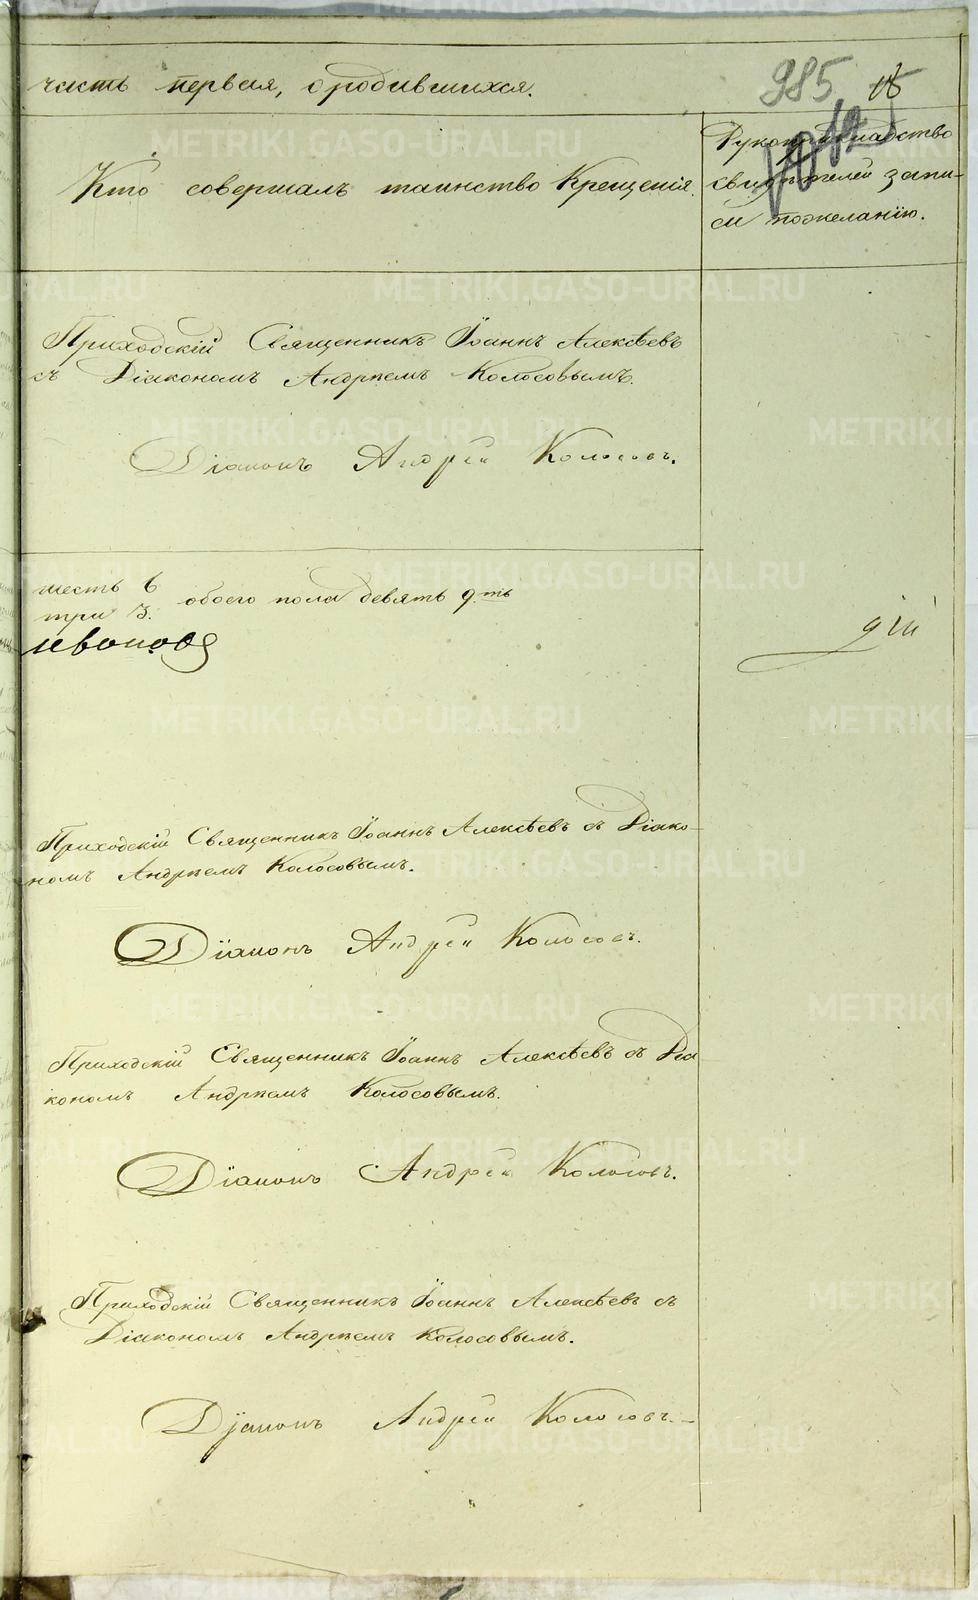 часть первая, о родившихся.
985
Кто совершалъ таинство Крещенія
Рукоприкладство
свидѣтелей запи-
си по желанію.
Приходскій Священникъ Іоаннъ Алексѣевъ
съ Діакономъ Андреемъ Колосовымъ.
Діаконъ Андрей Колосовъ.
шесть 6
три 3. обоего пола девять 9.ть
Приходскій Священникъ Іоаннъ Алексѣевъ съ Діако-
номъ Андреемъ Колосовымъ.
Діаконъ Андрей Колосовъ.
Приходскій Священникъ Іоаннъ Алексѣевъ съ Діа
кономъ Андреемъ Колосовымъ.
Діаконъ Андрей Колосовъ.
Приходскій Священникъ Іоаннъ Алексѣевъ съ
Діакономъ Андреемъ Колосовымъ.
Діаконъ Андрей Колосовъ.
METRIKI.GASO-URAL.RU